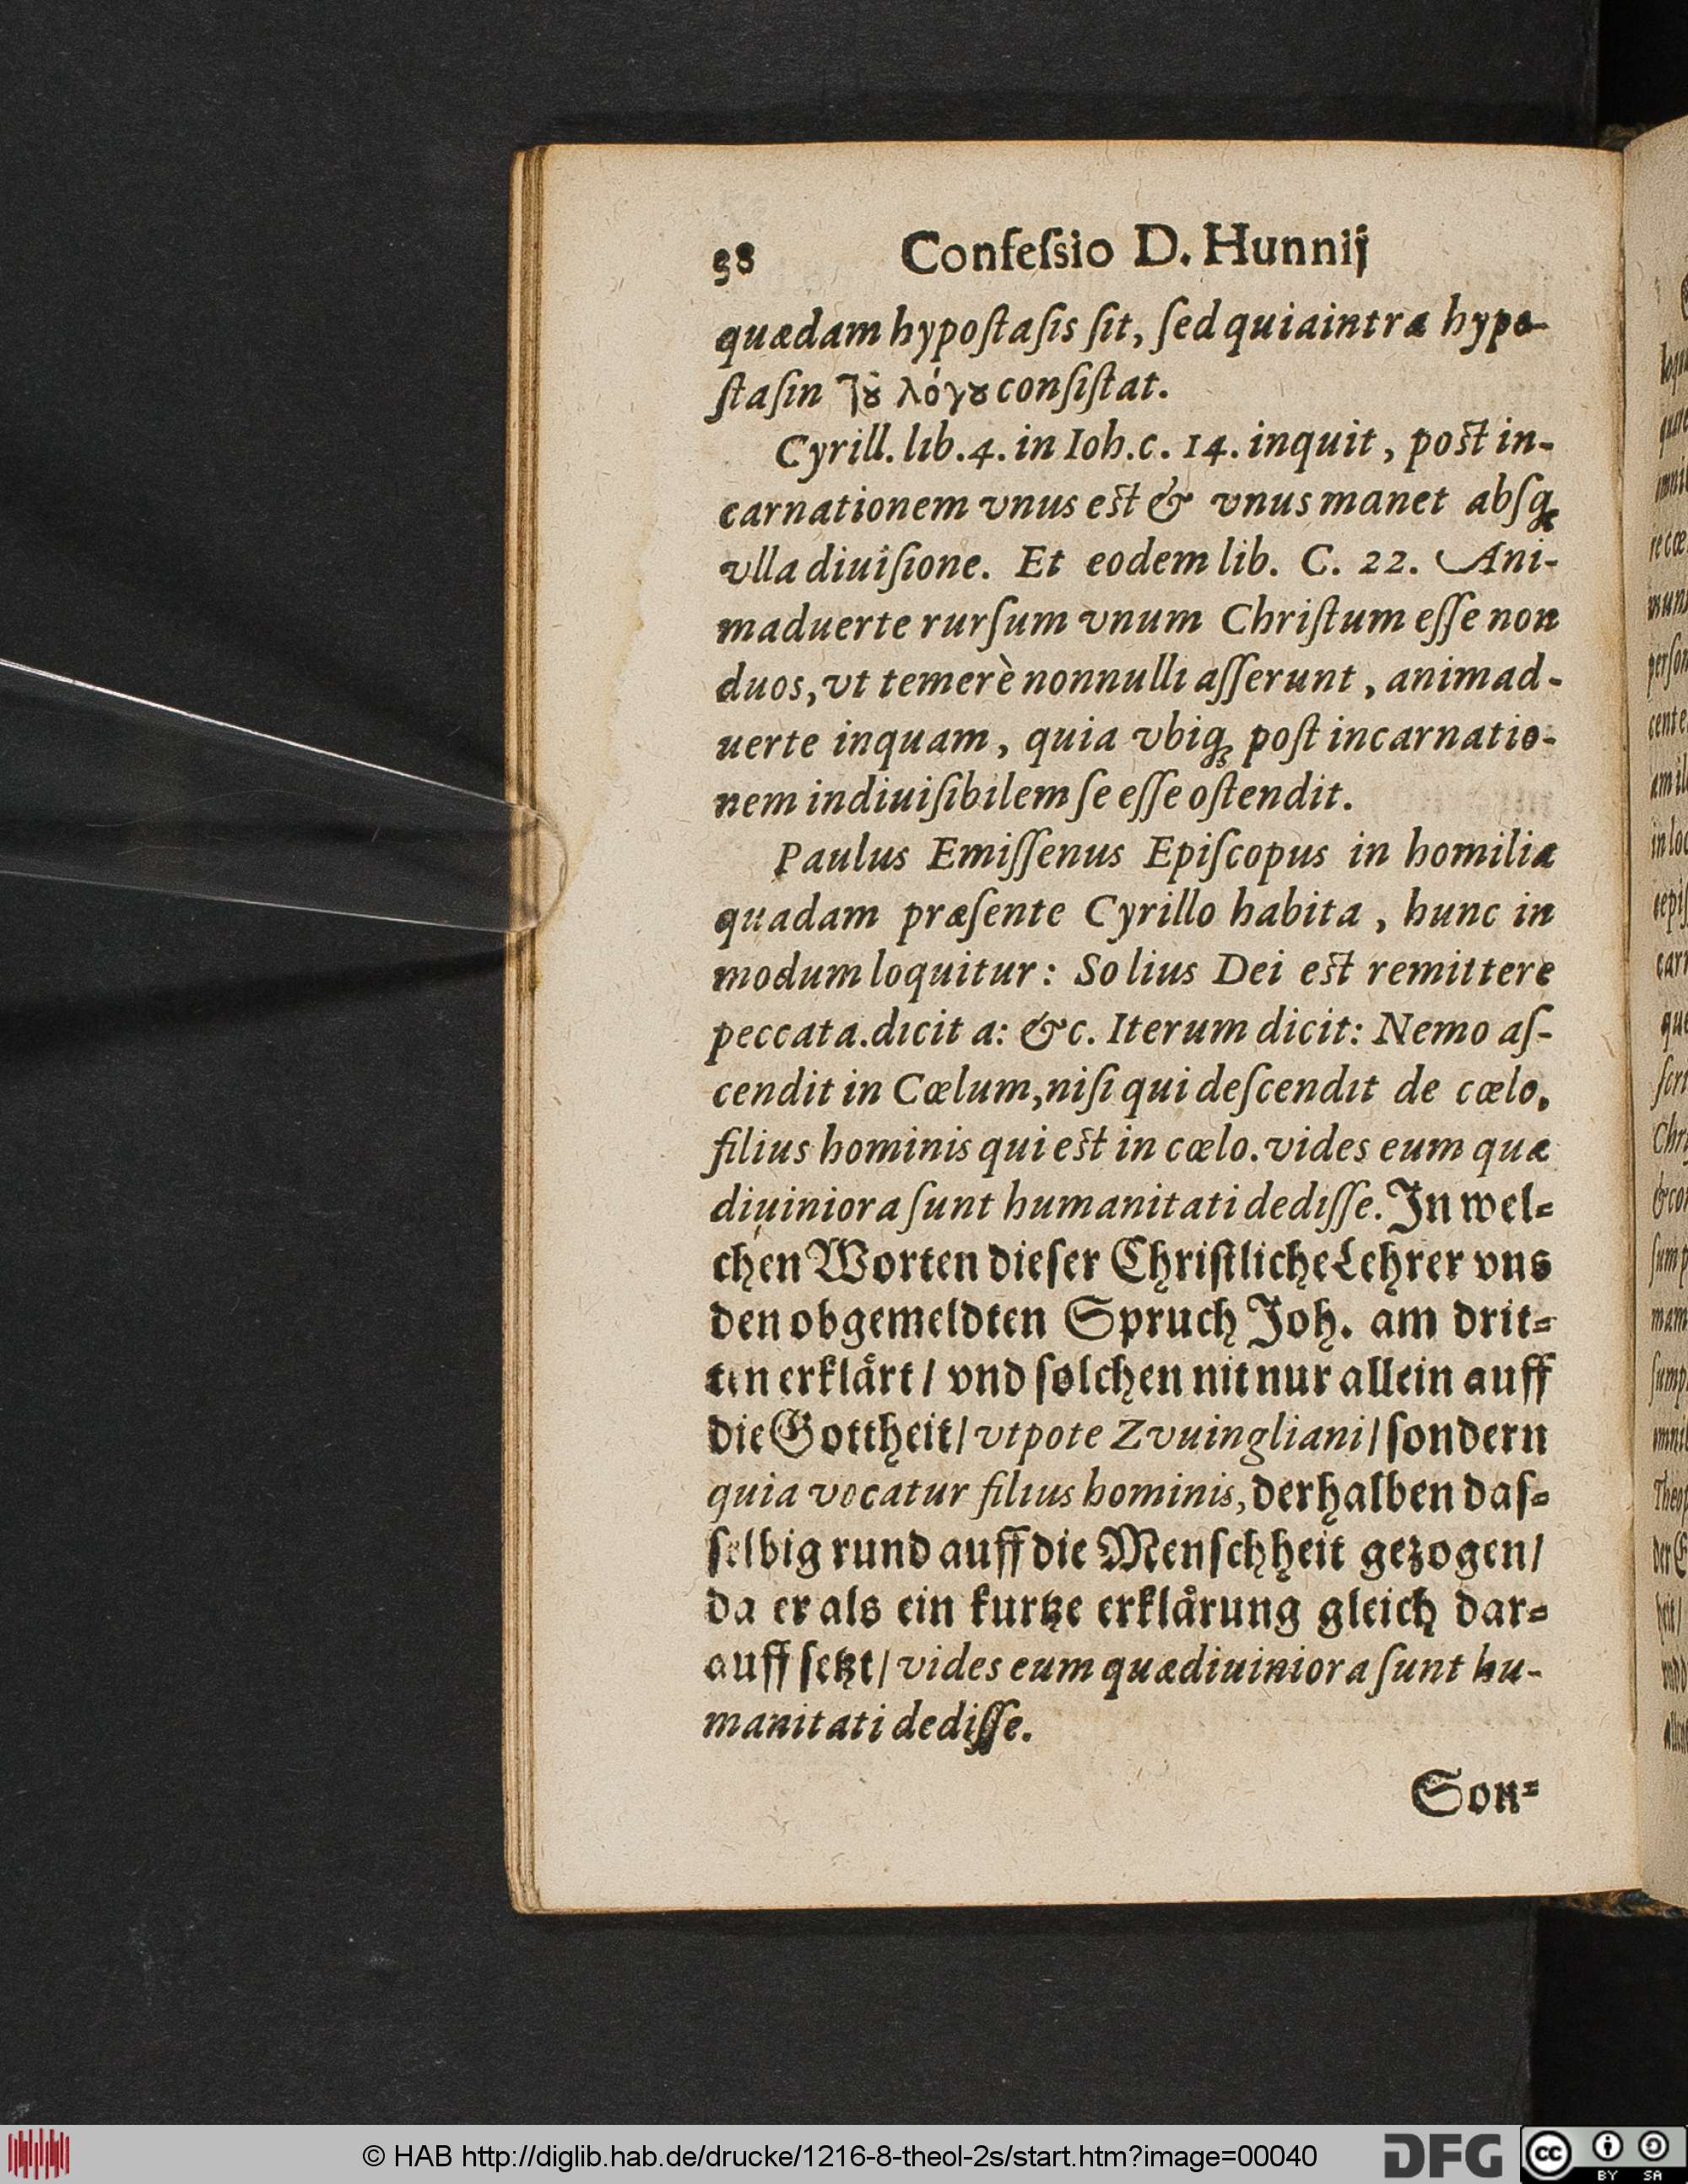 38 Confeſsio D. Hunnij
quædam hypoſtaſis ſit, ſed quia intra hypo-
ſtaſin τȣ͂ λόγȣ conſiſtat.
Cyrill. lib. 4. in Ioh. c. 14. inquit, poſt in-
carnationem vnus eſt & vnus manet abſq;
vlla diuiſione. Et eodem lib. C. 22. Ani-
maduerte rurſum vnum Chriſtum eſſe non
duos, vt temerè nonnulli aſſerunt, animad-
uerte inquam, quia vbiq; poſt incarnatio-
nem indiuiſibilem ſe eſſe oſtendit.
Paulus Emiſſenus Epiſcopus in homilia
quadam præſente Cyrillo habita, hunc in
modum loquitur: Solius Dei eſt remittere
peccata. dicit a: &c. Iterum dicit: Nemo aſ-
cendit in Cœlum, niſi qui deſcendit de cœlo,
filius hominis qui eſt in cœlo. vides eum quæ
diuiniora ſunt humanitati dediſſe. In wel-
chen Worten dieſer Chriſtliche Lehrer vns
den obgemeldten Spruch Joh. am drit-
ten erklårt / vnd ſolchen nit nur allein auff
die Gottheit / vtpote Zvuingliani / ſondern
quia vocatur filius hominis, derhalben daſ-
ſelbig rund auff die Menſchheit gezogen /
da er als ein kurtze erklårung gleich dar-
auff ſetzt / vides eum quæ diuiniora ſunt hu-
manitati dediſſe.
Son-
© HAB http://diglib.hab.de/drucke/1216-8-theol-2s/start.htm?image=00040
DFG
cc BY SA